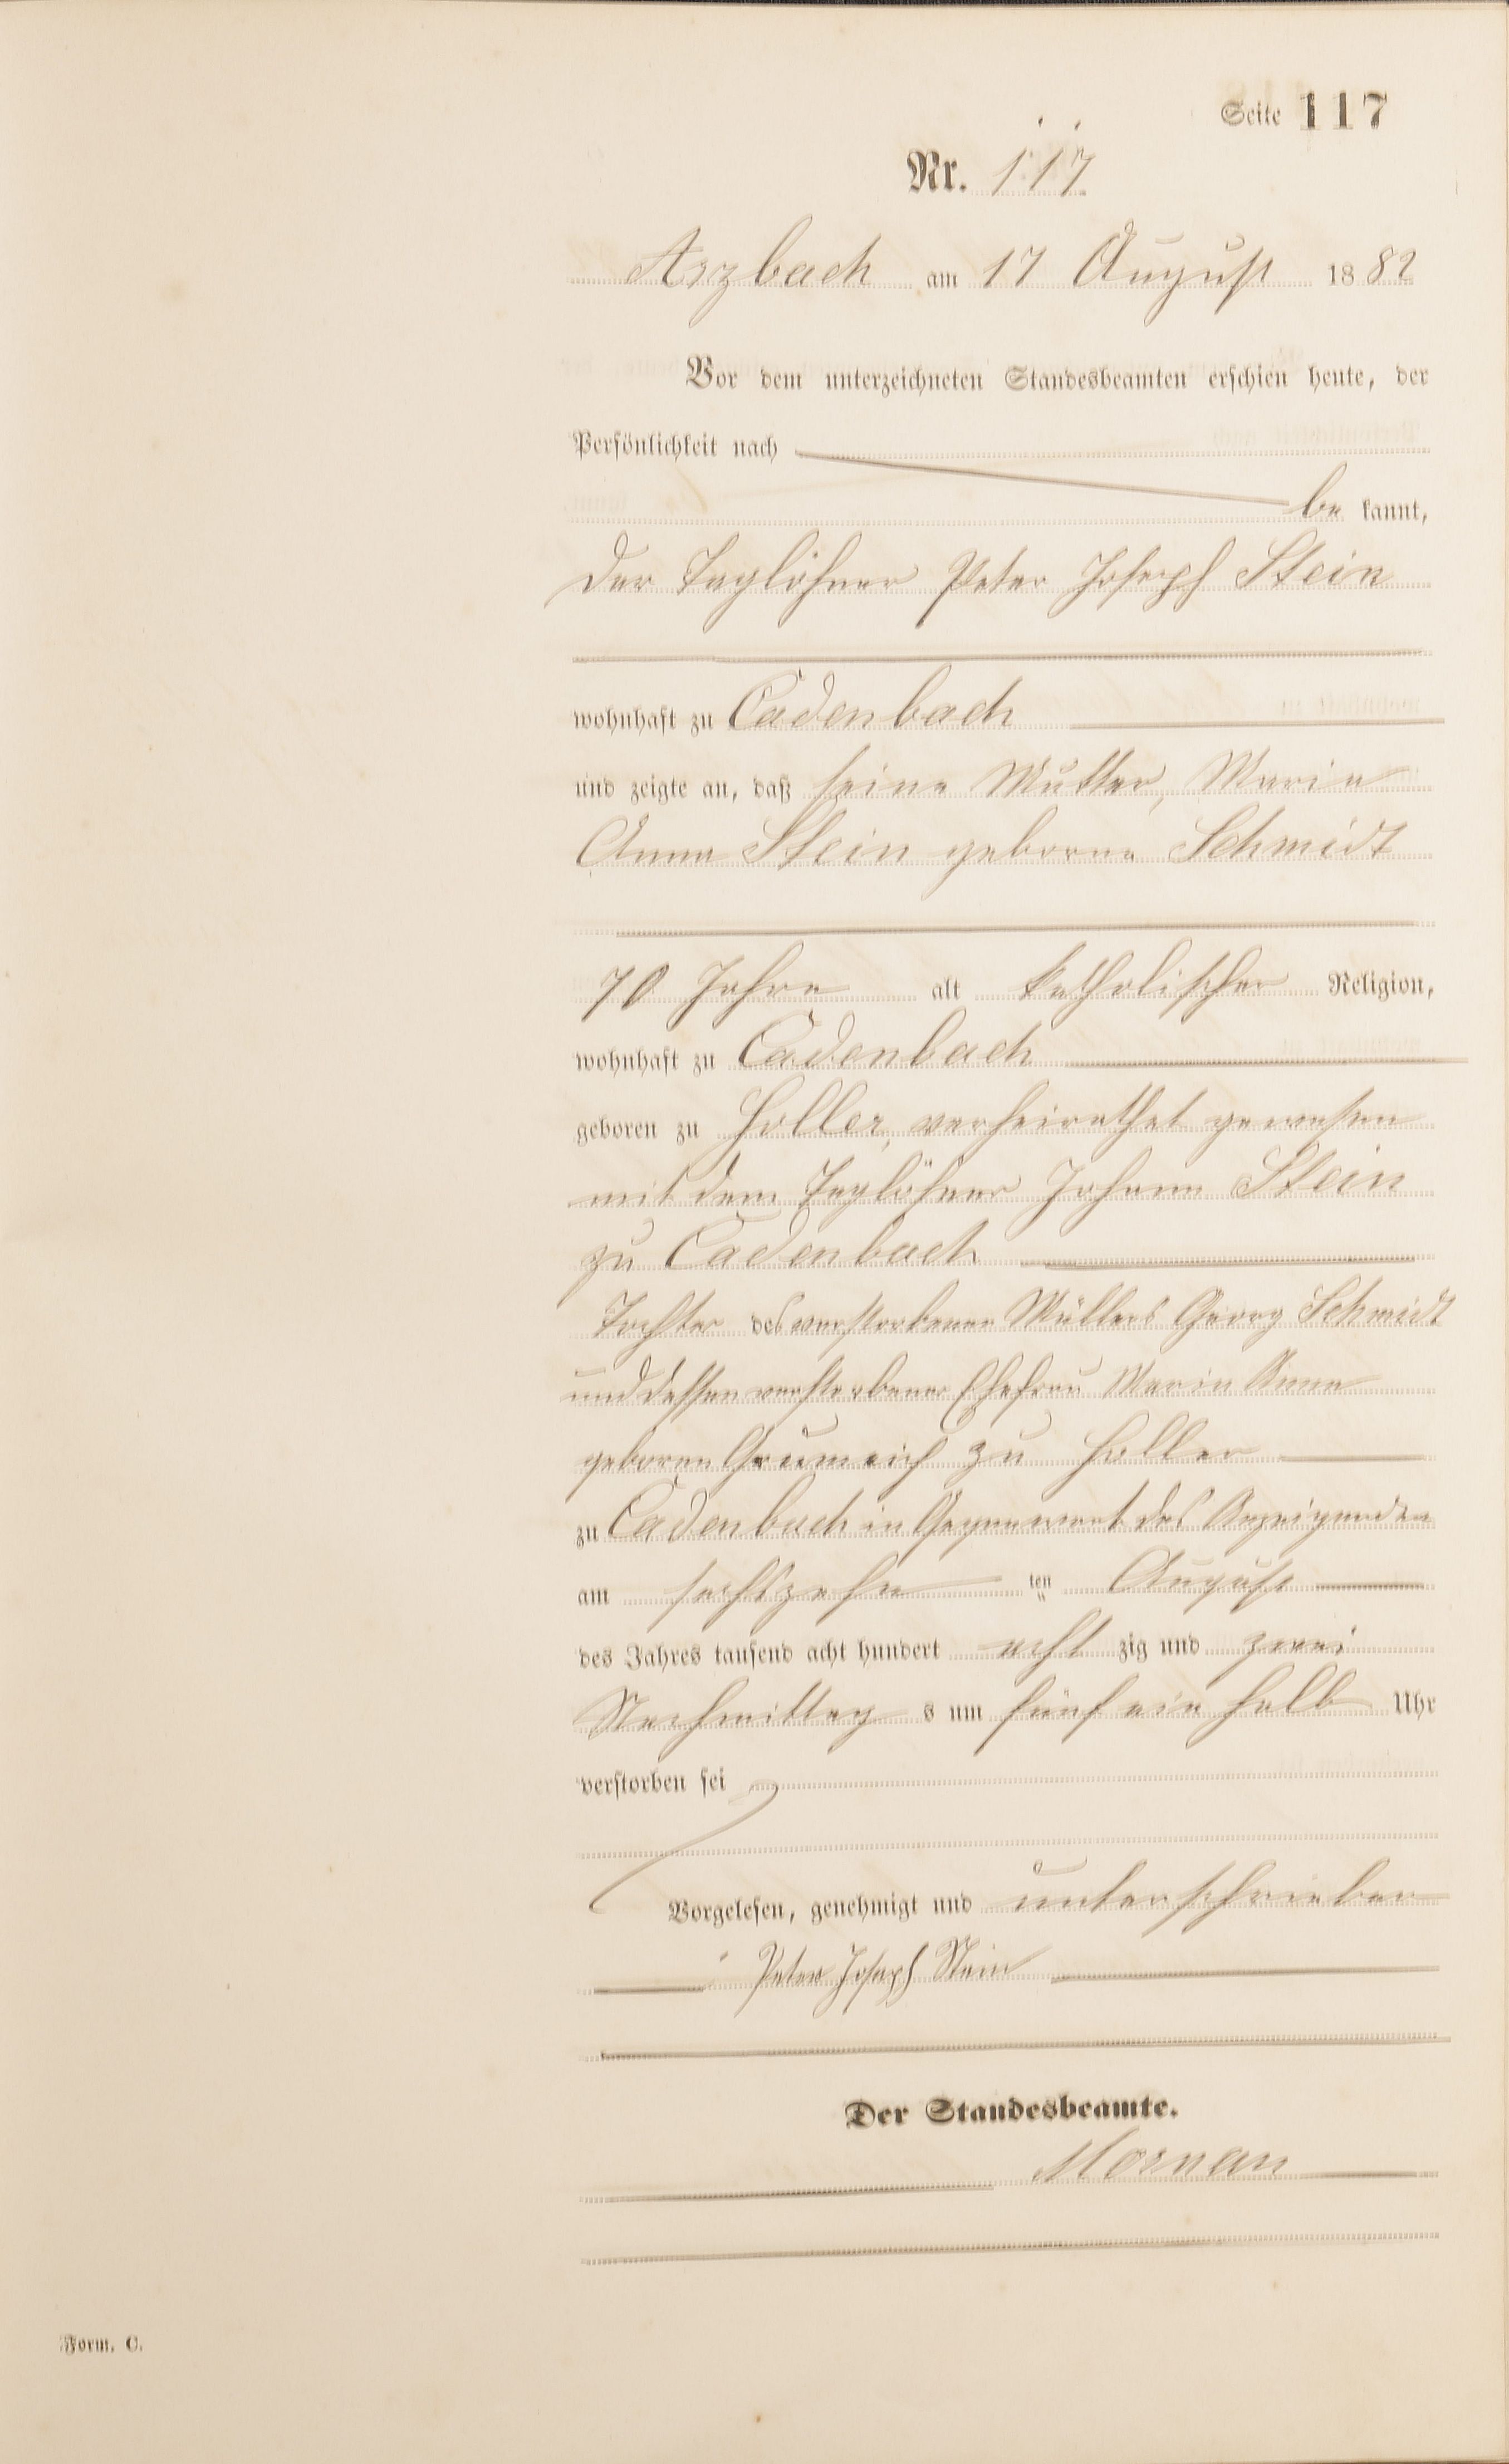 Seite 117
Nr. 117
Arzbach am 17 August 1882
Vor dem unterzeichneten Standesbeamten erschien heute, der
Persönlichkeit nach
be kannt,
der Taglöhner Peter Joseph Stein
wohnhaft zu Cadenbach
und zeigte an, daß seine Mutter, Maria
Anna Stein geborne Schmidt
70 Jahre alt katholischer Religion,
wohnhaft zu Cadenbach
geboren zu Holler, verheirathet gewesen
mit dem Taglöhner Johann Stein
zu Cadenbach
Tochter des verstorbenen Müllers Georg Schmidt
und dessen verstorbener Ehefrau Maria Anna
geboren zu Holler
zu Cadenbach in Gegenwart des Anzeigenden
am sechszehn ten August
des Jahres tausend acht hundert acht zig und zwei
Nachmittag s um fünf ein halb Uhr
verstorben sei
Vorgelesen, genehmigt und unterschrieben
Peter Joseph Stein
Der Standesbeamte.
Form. C.